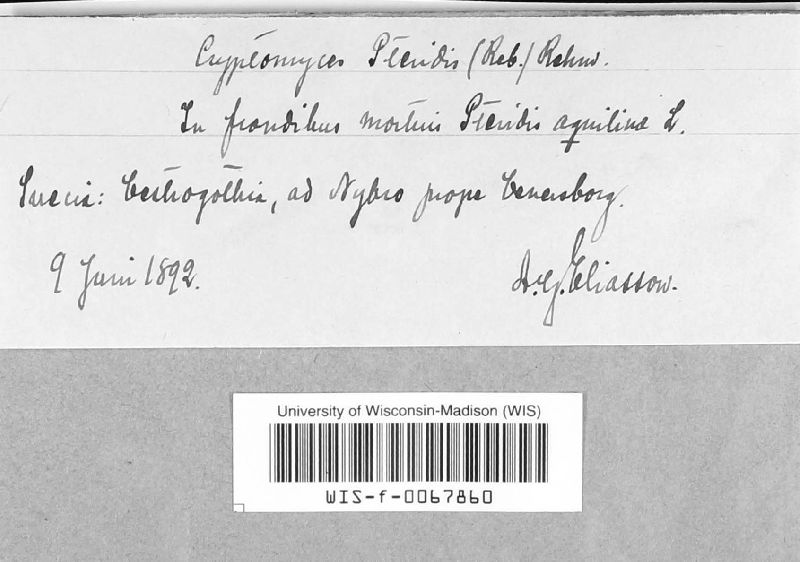 Cryptomyces Pteridis (Reb.) Rehm.
In frondibus mortuis Pteridis aquilinæ L.
Suecia: Vestrogothia, ad Nybro prope Venersborg.
9 Juni 1892. A.G. Eliasson.
University of Wisconsin-Madison (WIS)
WIS-f-0067860